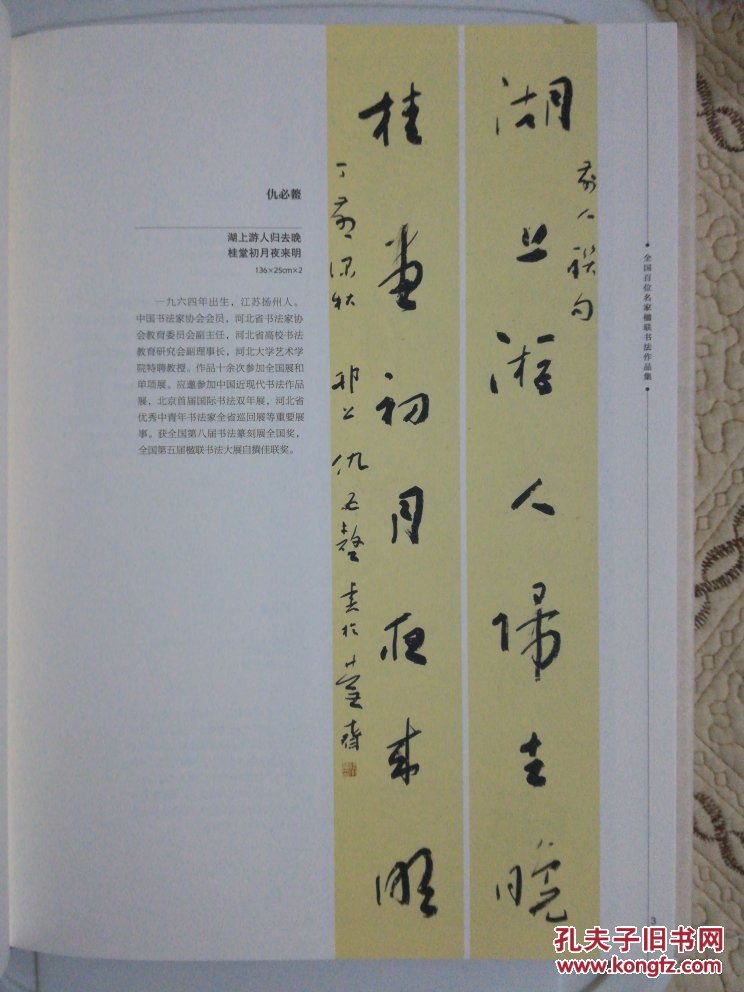 仇必鳌
湖上游人归去晚
桂堂初月夜来明
136×25cm×2
一九六四年出生，江苏扬州人。
中国书法家协会会员，河北省书法家协
会教育委员会副主任，河北省高校书法
教育研究会副理事长，河北大学艺术学
院特聘教授。作品十余次参加全国展和
单项展。应邀参加中国近现代书法作品
展，北京首届国际书法双年展，河北省
优秀中青年书法家全省巡回展等重要展
事。获全国第八届书法篆刻展全国奖，
全国第五届楹联书法大展自撰佳联奖。
湖上游人归去晚
前人联句
桂堂初月夜来明
全国百位名家楹联书法作品集
3
孔夫子旧书网
www.kongfz.com